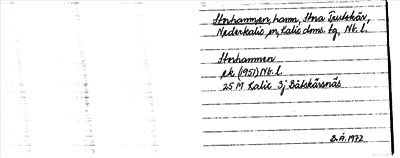 Storhamnen, hamn, Stora Trutskär,
Nederkalix sn, Kalix doms. tg, Nb. l.
Storhamnen
ek (1951) Nb. l.
25 M Kalix 3j Båtskärsnäs
B.A. 1972